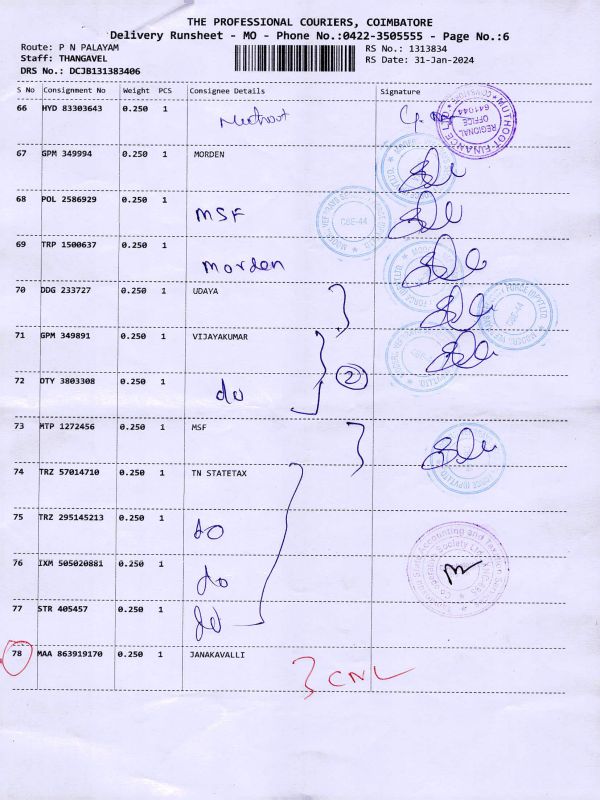 THE PROFESSIONAL COURIERS, COIMBATORE
Delivery Runsheet - MO - Phone No.:0422-3505555 - Page No.:6
Route: P N PALAYAM
Staff: THANGAVEL
DRS No.: DCJB131383406
RS No.: 1313834
RS Date: 31-Jan-2024
S No Consignment No Weight PCS Consignee Details Signature
66 HYD 83303643 0.250 1 Muthoot
MUTHOOT FINANCE LTD REGIONAL OFFICE 641044
67 GPM 349994 0.250 1 MORDEN
68 POL 2586929 0.250 1 MSF
CBE-44
69 TRP 1500637 0.250 1 morden
70 DDG 233727 0.250 1 UDAYA
CBE-44
71 GPM 349891 0.250 1 VIJAYAKUMAR
72 OTY 3803308 0.250 1 do 2
73 MTP 1272456 0.250 1 MSF
74 TRZ 57014710 0.250 1 TN STATETAX
75 TRZ 295145213 0.250 1 do
76 IXM 505020881 0.250 1 do
77 STR 405457 0.250 1 do
78 MAA 863919170 0.250 1 JANAKAVALLI
CNL